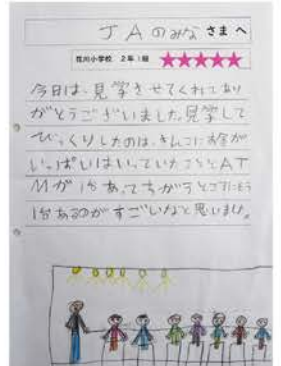 JAのみなさまへ
花川小学校 2年1組
今日は、見学させてくれてあり
がとうございました。見学して
びっくりしたのは、きんこにお金が
いっぱいはいっていたこととAT
Mが1台あってちがうところにもう
1台あるのがすごいなと思いました。